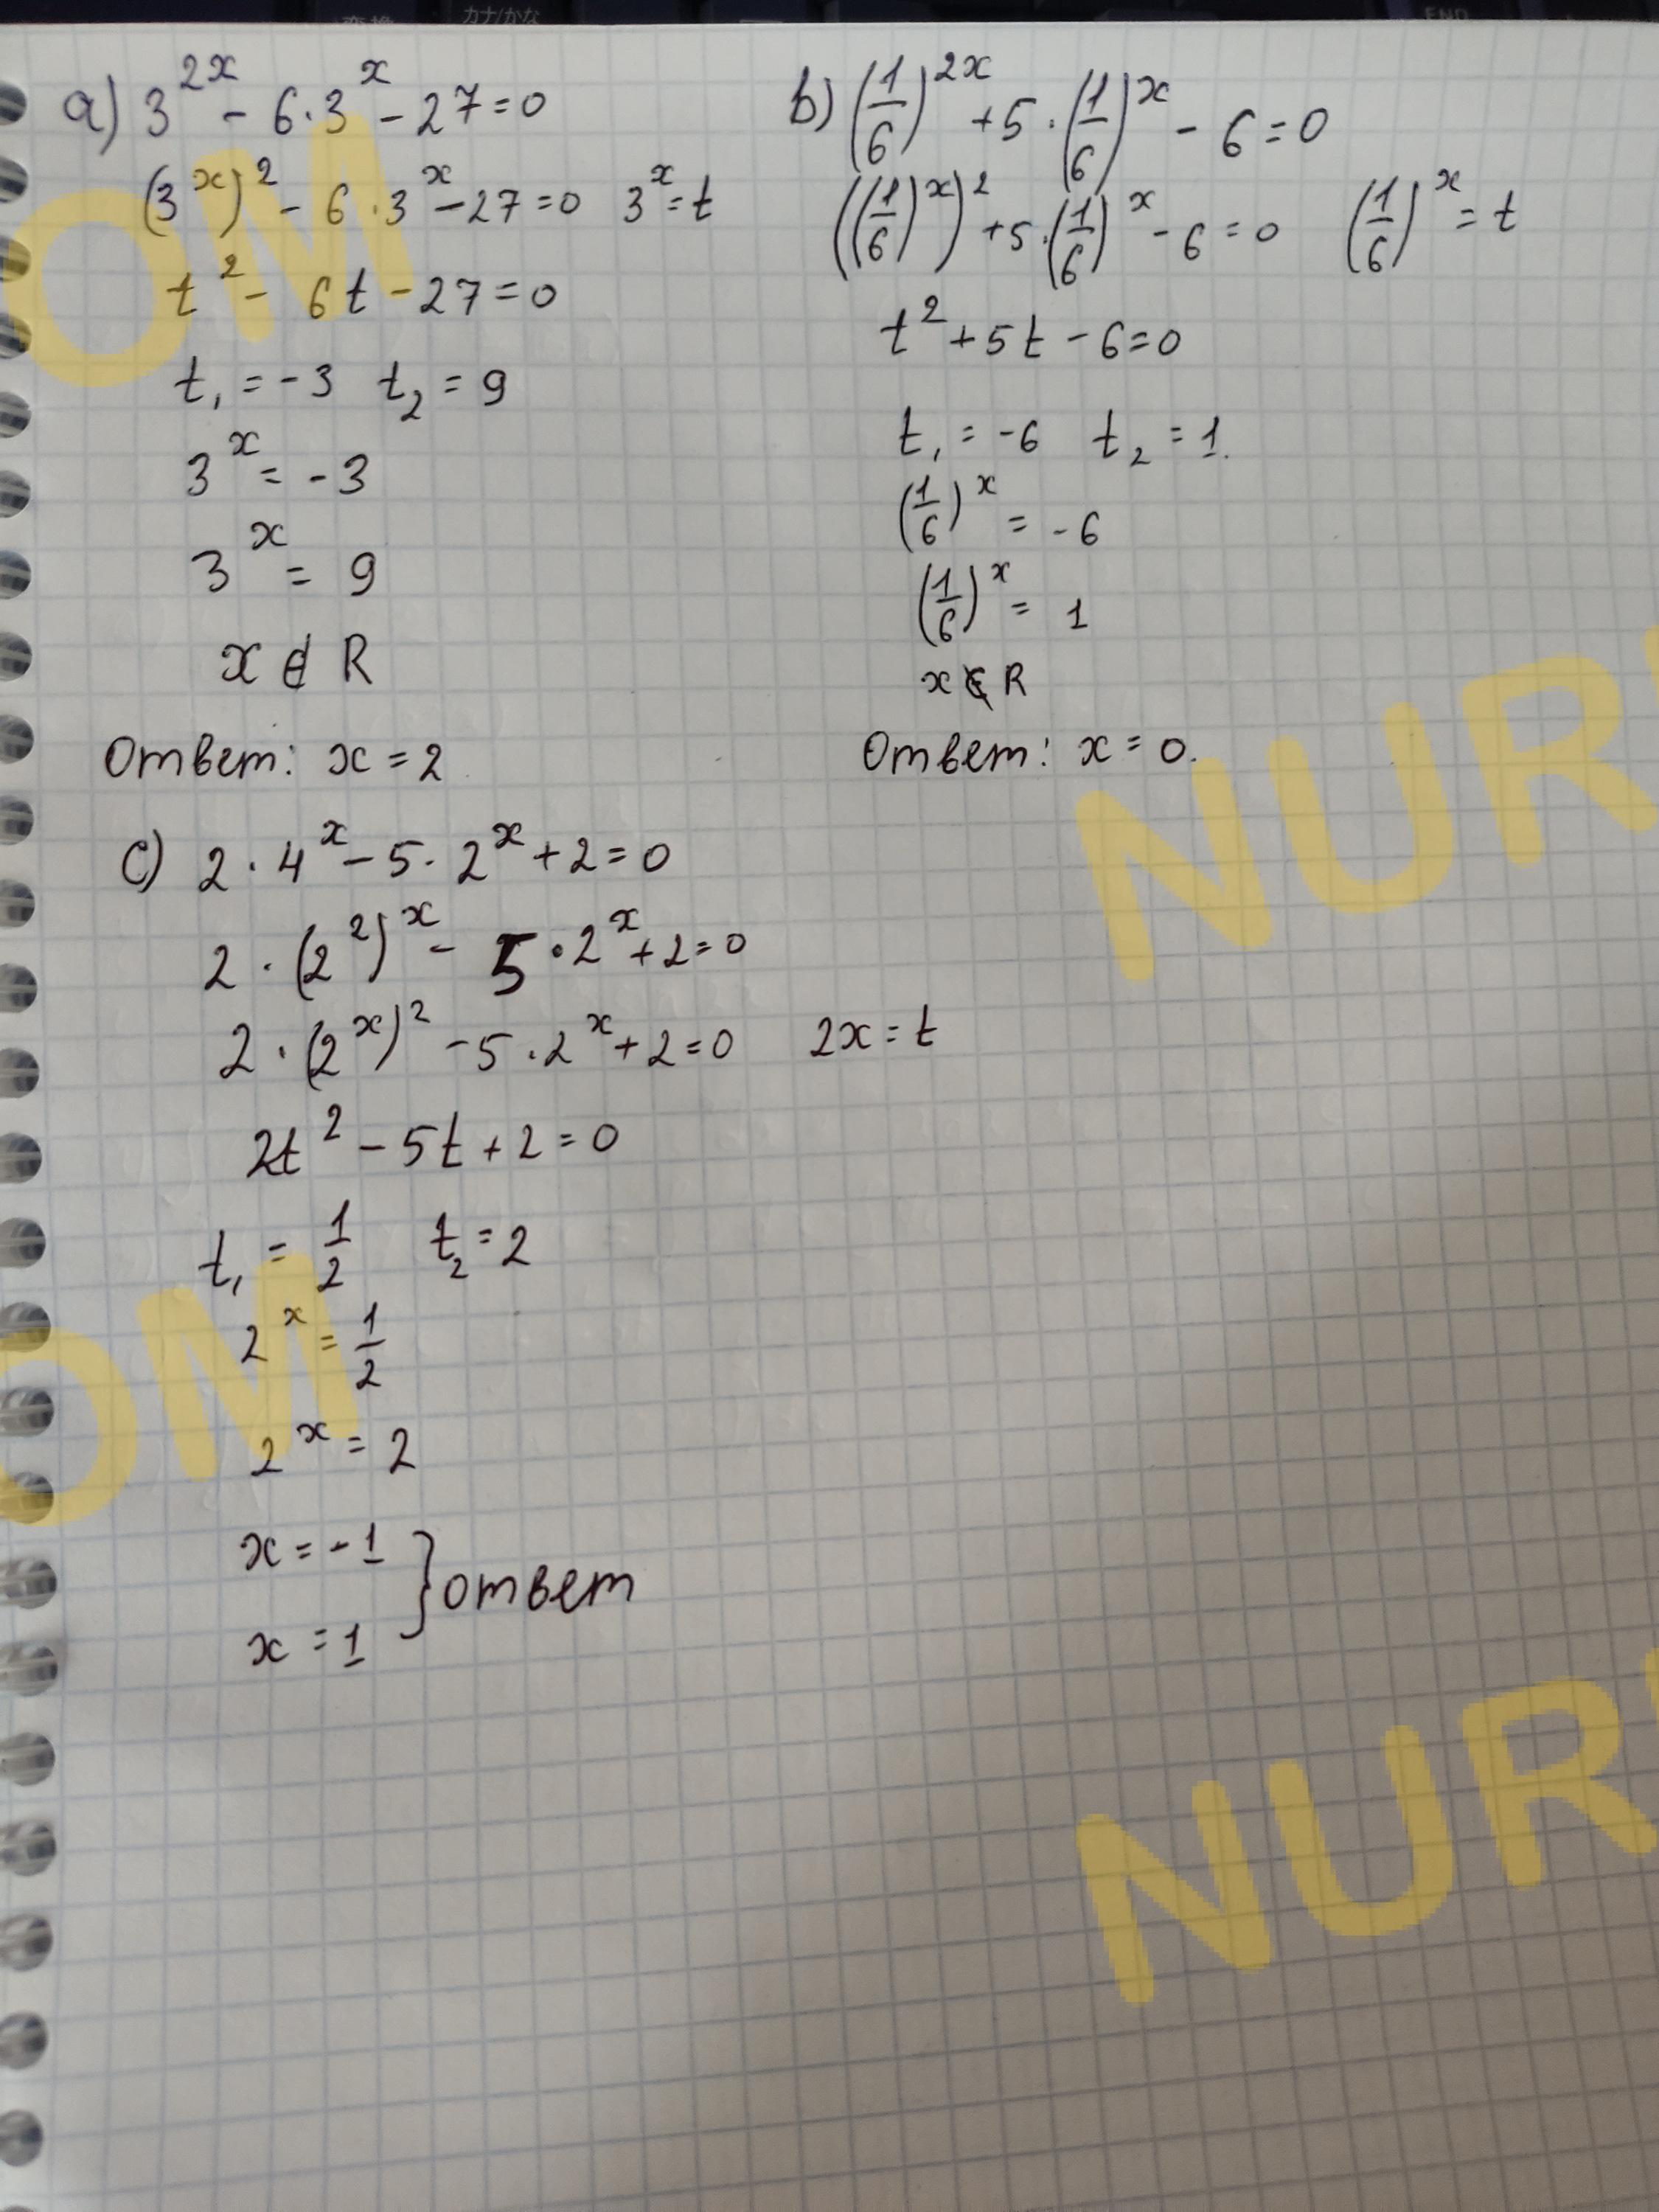 変換 カナ/かな END
a) 3^{2x} - 6·3^x - 27 = 0
(3^x)^2 - 6·3^x - 27 = 0 3^x = t
t^2 - 6t - 27 = 0
t_1 = -3 t_2 = 9
3^x = -3
3^x = 9
x ∉ R
Ответ: x = 2
b) (1/6)^{2x} + 5·(1/6)^x - 6 = 0
((1/6)^x)^2 + 5·(1/6)^x - 6 = 0 (1/6)^x = t
t^2 + 5t - 6 = 0
t_1 = -6 t_2 = 1.
(1/6)^x = -6
(1/6)^x = 1
x ∉ R
Ответ: x = 0.
c) 2·4^x - 5·2^x + 2 = 0
2·(2^2)^x - 5·2^x + 2 = 0
2·(2^x)^2 - 5·2^x + 2 = 0 2x = t
2t^2 - 5t + 2 = 0
t_1 = 1/2 t_2 = 2
2^x = 1/2
2^x = 2
x = -1
x = 1 } ответ
OM
NUR
OM
NUR